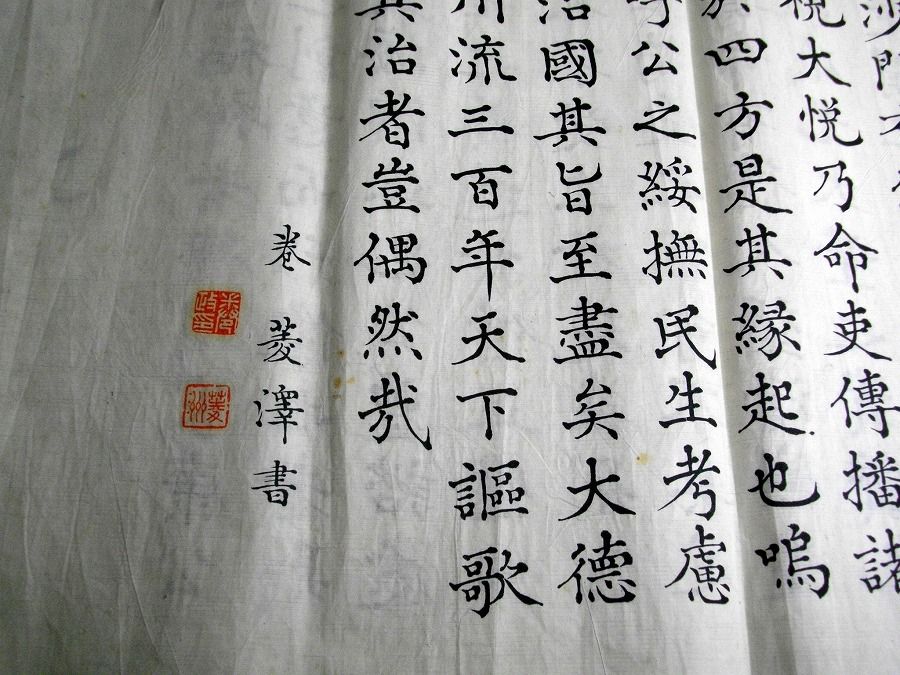 沙門
悦大悦乃命吏傳播諸
於四方是其縁起也嗚
乎公之綏撫民生考慮
治國其旨至盡矣大德
川流三百年天下謳歌
其治者豈偶然哉
巻 菱澤書